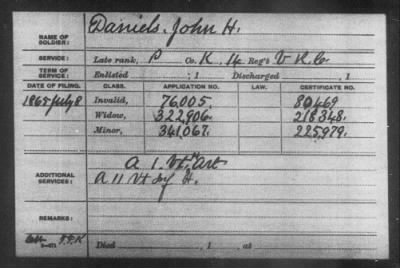 NAME OF SOLDIER: Daniels, John H.
SERVICE: Late rank, P Co. K, 14 Reg't V. R. C.
TERM OF SERVICE: Enlisted , 1 Discharged , 1
DATE OF FILING. CLASS. APPLICATION NO. LAW. CERTIFICATE NO.
1865 July 8 Invalid, 76.005. 80469
Widow, 322,906. 218348.
Minor, 341,067. 225,979.
A 1. Vt. H Art
ADDITIONAL SERVICES: A 11 Vt Inf H.
REMARKS:
Died , 1 , at